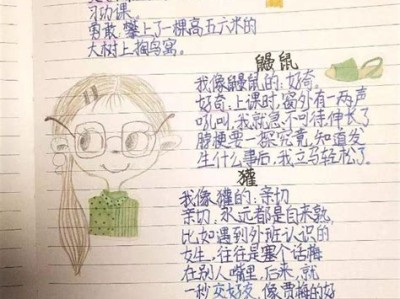 习功课。
勇敢,攀上了一棵高五六米的
大树上掏鸟窝。
鼹鼠
我像鼹鼠的:好奇。
好奇,上课时,窗外有一两声
吼叫,我就急不可待伸长了
脖梗要一探究竟,知道发
生什么事后,我立马轻松了。
獾
我像獾的:亲切
亲切,永远都是自来熟,
比如遇到外班认识的
女生,往往是塞个话梅
在别人嘴里,后来,就
一秒交好的